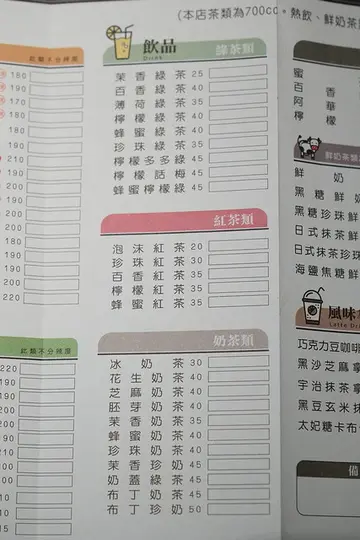 (本店茶類為700cc。熱飲、鮮奶茶
此類不分辣度
180
190
180
180
180
190
210
190
190
200
200
220
此類不分辣度
220
190
飲品
Drink
綠茶類
茉香綠茶 25
百香綠茶 40
薄荷綠茶 35
檸檬綠茶 40
蜂蜜綠茶 40
珍珠綠茶 35
檸檬多多綠 45
檸檬話梅 45
蜂蜜檸檬綠 45
紅茶類
泡沫紅茶 20
珍珠紅茶 30
百香紅茶 35
檸檬紅茶 35
蜂蜜紅茶 35
奶茶類
冰奶茶 30
花生奶茶 40
芝麻奶茶 40
胚芽奶茶 40
茉香奶茶 35
蜂蜜奶茶 40
珍珠奶茶 40
茉香珍奶 45
奶蓋綠茶 45
布丁奶茶 45
布丁珍奶 50
蜜
百香
阿華
檸檬
鮮奶茶類
鮮奶
黑糖鮮
黑糖珍珠鮮
日式抹茶鮮
日式抹茶珍珠
海鹽焦糖鮮
風味
Latte Dri
巧克力豆咖啡
黑沙芝麻拿
宇治抹茶拿
黑豆玄米抹
太妃糖卡布
備